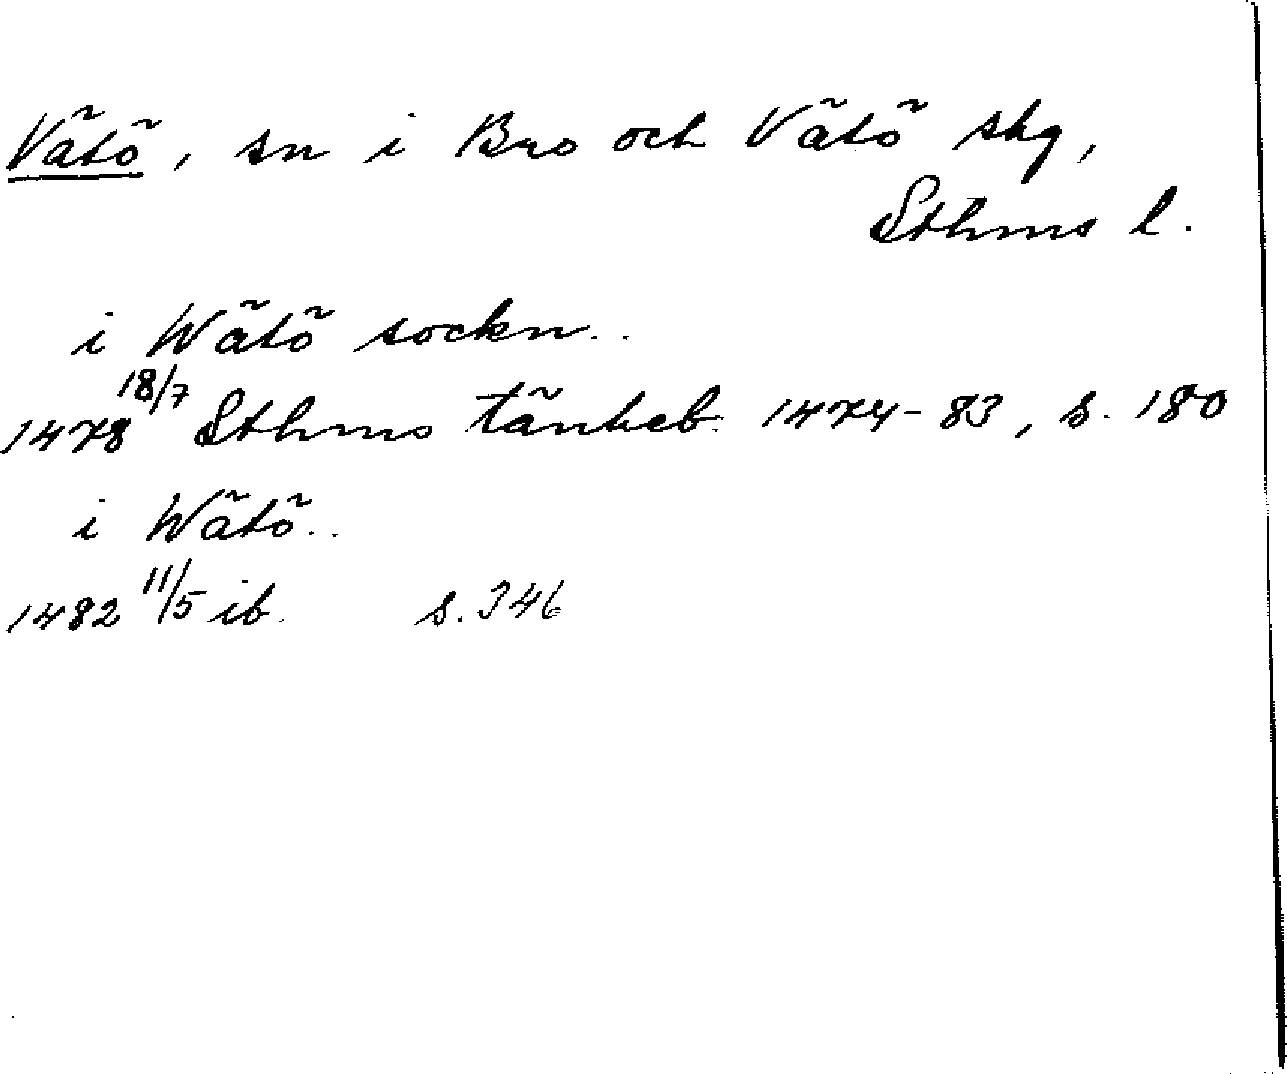 Vätö, sn i Bro och Vätö skg,
Sthms l.
i Wätö sockn..
1478 18/7 Sthms tänkeb. 1474-83, s. 180
i Wätö..
1482 11/5 ib. s. 346